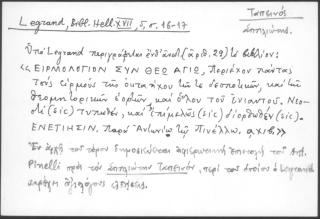 Legrand, Bibl. Hell. XVII, 5, σ. 16-17
Ταπεινός
Σπηλιώτης.
Ὑπὸ Legrand περιγράφεται ἐνθ' ἀνωτ. (ἀρ. 29) τὸ βιβλίον:
«ΕΙΡΜΟΛΟΓΙΟΝ ΣΥΝ ΘΕΩ ΑΓΙΩ, Περιέχον πάντας
τοὺς εἱρμοὺς τῆς ὀκταήχου τῶν τε δεσποτικῶν, καὶ τῶν
θεομητορικῶν ἑορτῶν, καὶ ὅλου τοῦ ἐνιαυτοῦ. Νεω-
στὶ (sic) τυπωθέν, καὶ ἐπιμελῶς (sic) διορθωθέν (sic).
ΕΝΕΤΙΗΣΙΝ. Παρὰ Ἀντωνίῳ τῷ Πινέλλῳ. αχιβ»
Ἐν ἀρχῇ τοῦ τόμου δημοσιεύεται ἀφιερωτικὴ ἐπιστολὴ τοῦ Ant.
Pinelli πρὸς τὸν Σπηλιώτην Ταπεινόν, περὶ τοῦ ὁποίου ὁ Legrand
παρέχει ὀλίγας εἰδήσεις.